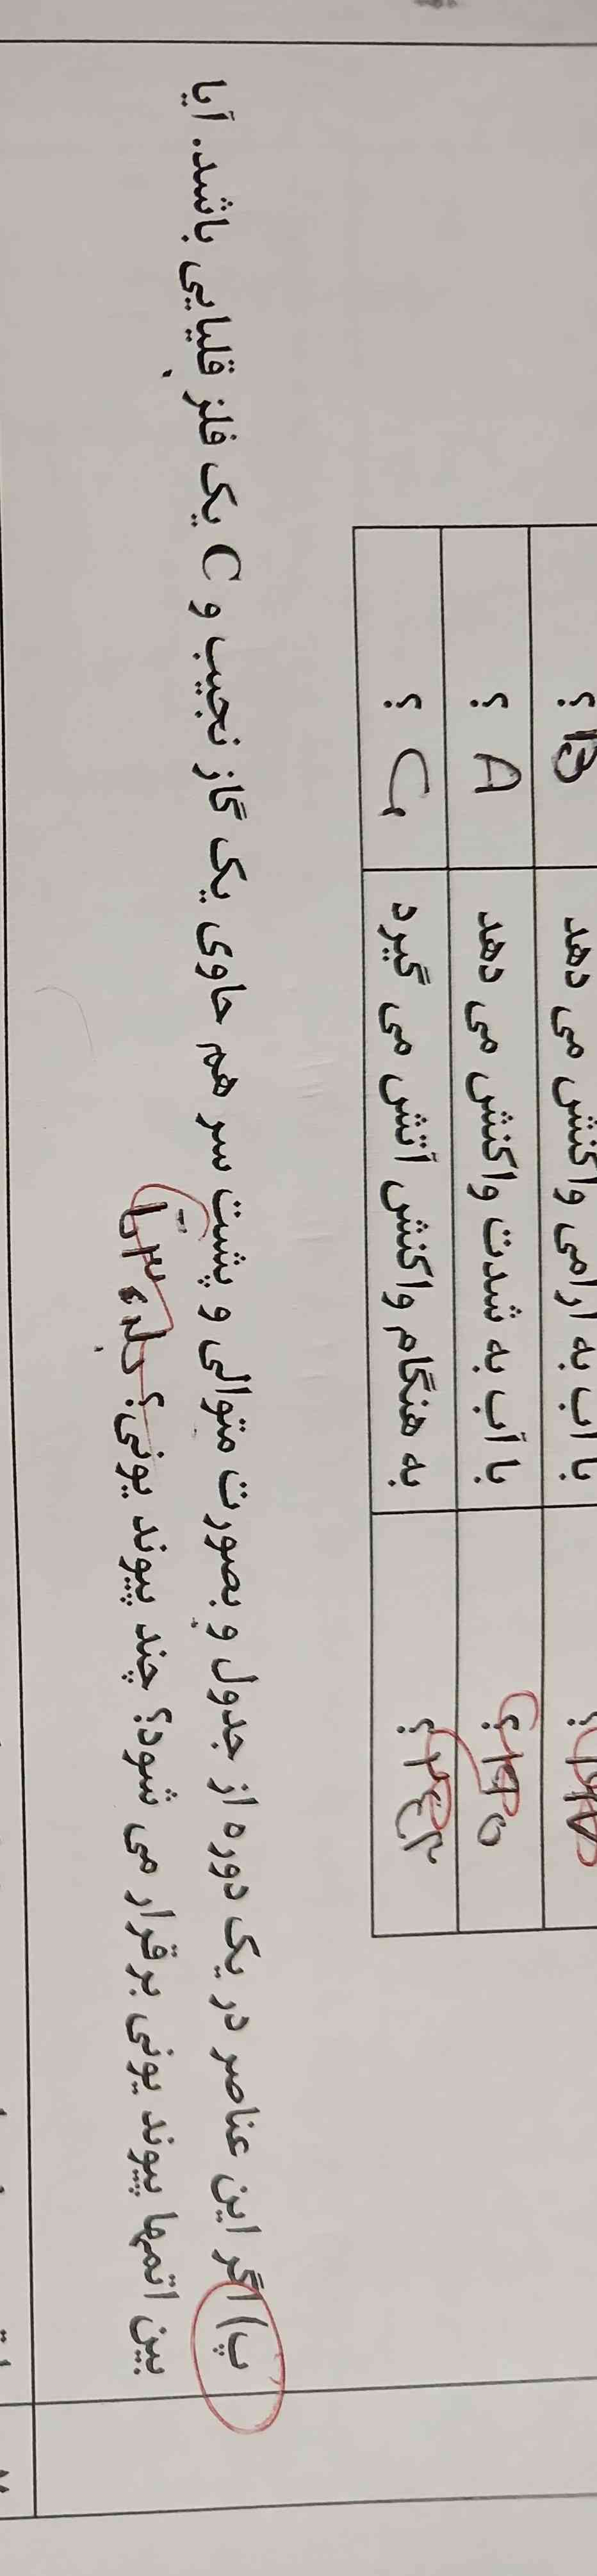 با آب به آرامی واکنش می دهد B ؟
با آب به شدت واکنش می دهد A ؟
؟ به هنگام واکنش آتش می گیرد C ؟
پ) اگر این عناصر در یک دوره از جدول و بصورت متوالی و پشت سر هم حاوی یک گاز نجیب و C یک فلز قلیایی باشد. آیا
بین اتمها پیوند یونی برقرار می شود؟ چند پیوند یونی؟ بله، ۳ تا